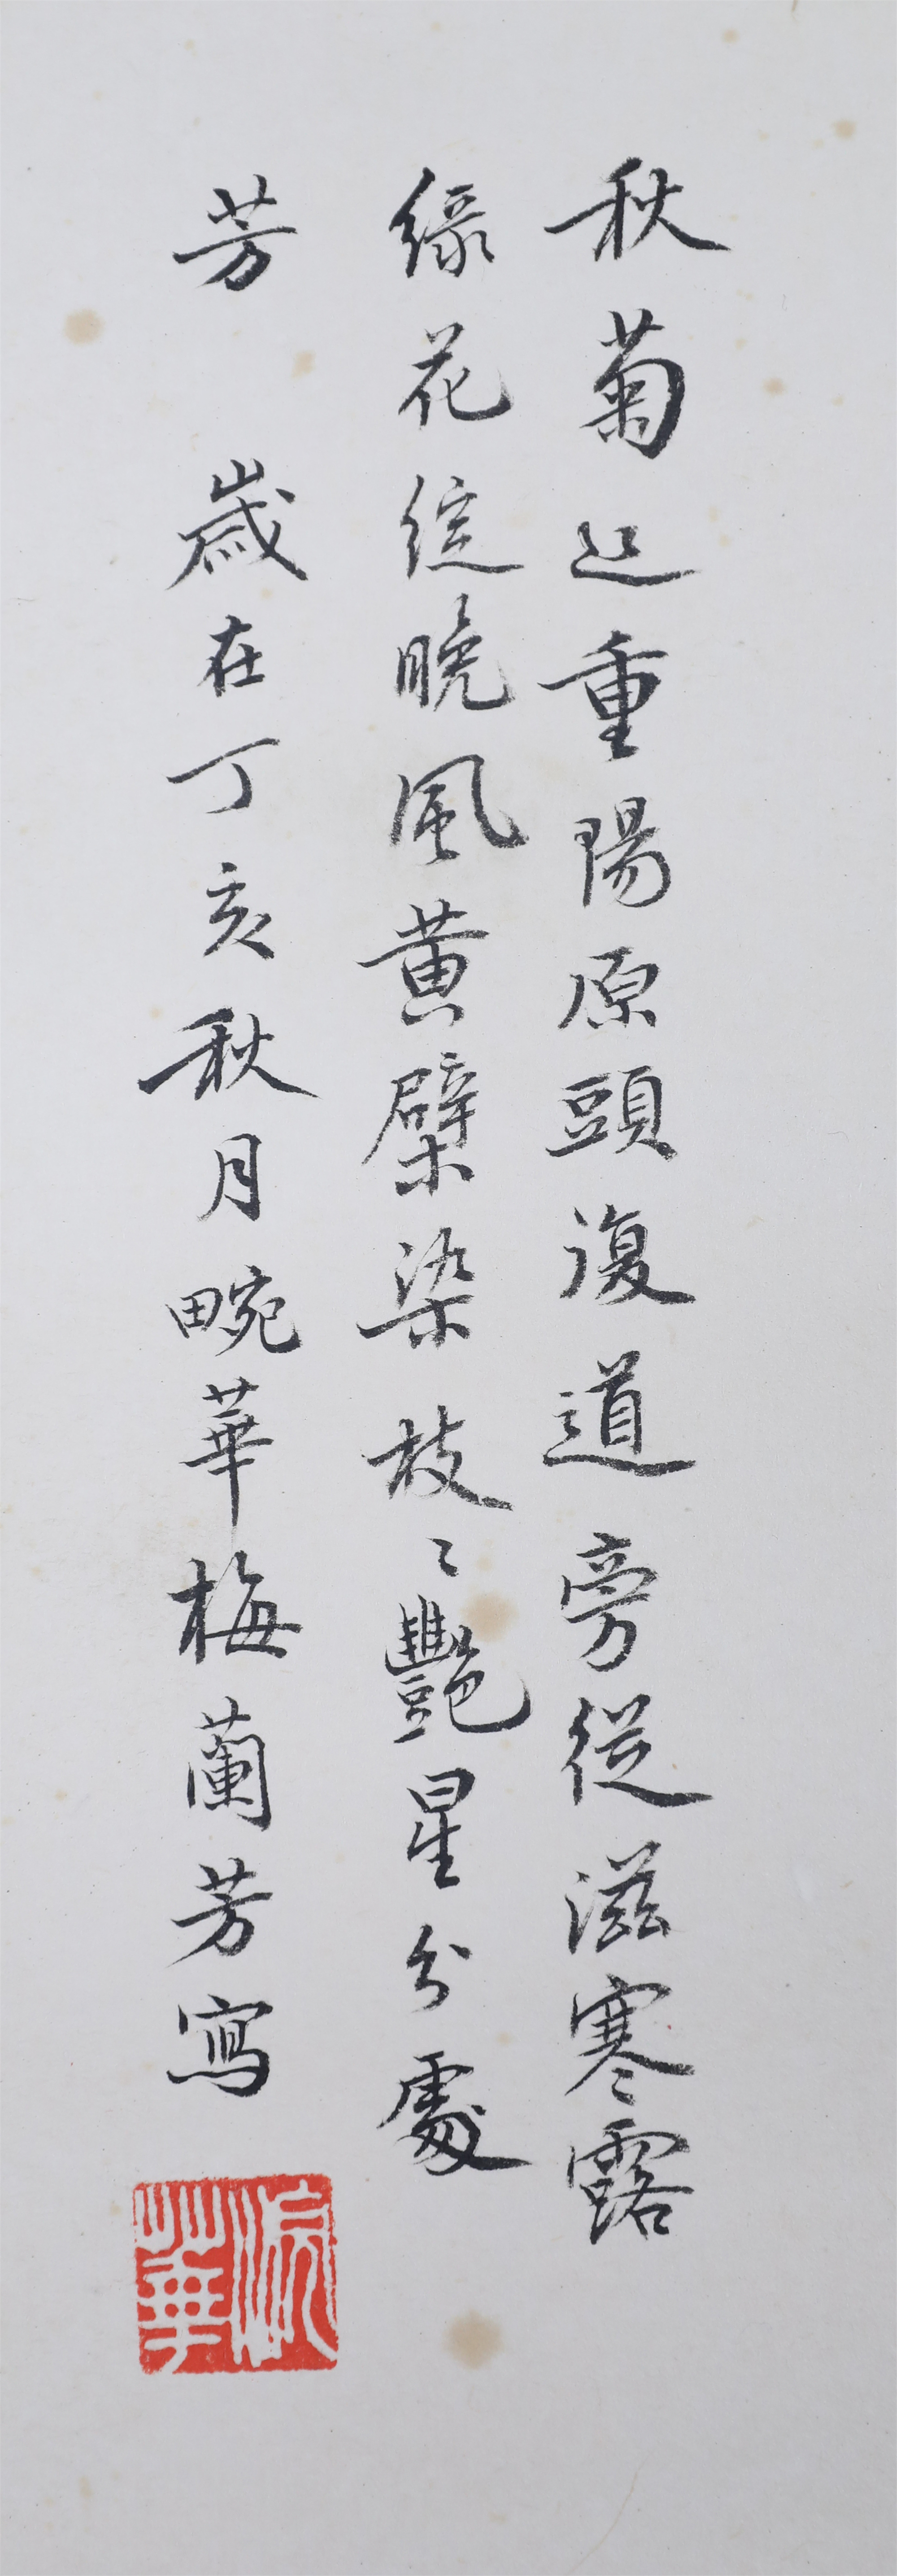 秋菊迎重陽原頭復道旁從滋寒露
綠花綻晚風黃檗染枝〻艷星分處
芳 歲在丁亥秋月畹華梅蘭芳寫
浣華